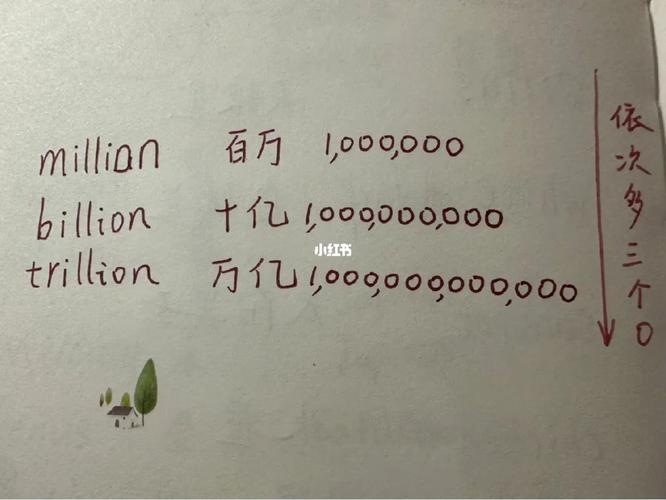 million 百万 1,000,000
billion 十亿 1,000,000,000
trillion 万亿 1,000,000,000,000
依次多三个0
小红书